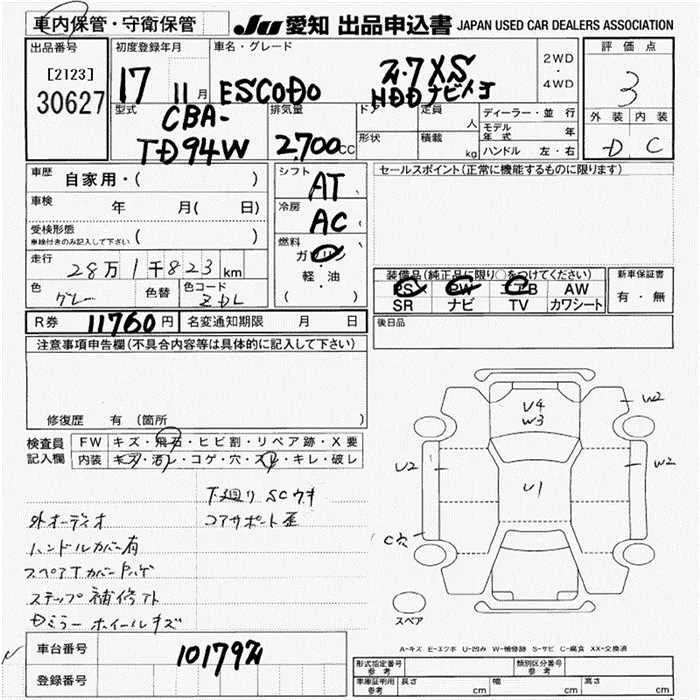 車内保管・守衛保管
JU 愛知 出品申込書 JAPAN USED CAR DEALERS ASSOCIATION
出品番号
[2123]
30627
初度登録年月
17
11月
車名・グレード
ESCODO
2.7XS
HDDナビメヨ
2WD
・
4WD
評価点
3
外装 内装
D C
型式
CBA-
TD94W
排気量
2.700cc
ドア
形状
定員
人
積載
kg
ディーラー・並行
モデル年式 年
ハンドル 左・右
車歴
自家用・( )
車検
年 月(日)
受検形態
車検付きのみ記入して下さい
( )
走行
28万1千823km
色
グレー
色替
色コード
ZDL
シフト
AT
冷房
AC
燃料
ガソリン
軽・油
( )
セールスポイント(正常に機能するものに限ります)
装備品(純正品に限り○をつけてください)
PS PW エアB AW
SR ナビ TV カワシート
新車保証書
有・無
R券
11760円
名変通知期限 月 日
後日品
注意事項申告欄(不具合内容等は具体的に記入して下さい)
修復歴 有(箇所 )
検査員記入欄
FW キズ・飛石・ヒビ割・リペア跡・X要
内装 キズ・汚レ・コゲ・穴・スレ・キレ・破レ
下廻り SCウキ
外オーディオ
コアサポート歪
ハンドルカバー有
スペアTカバー
ステップ補修
Dミラー ホイールキズ
U4
W3
W2
U2
W2
U1
C穴
スペア
A-キズ E-エクボ U-凹み W-補修跡 S-サビ C-腐食 XX-交換済
車台番号
101792
登録番号
形式指定番号
参考
類別区分番号
参考
車庫証明用
参考
長さ cm
幅 cm
高さ cm